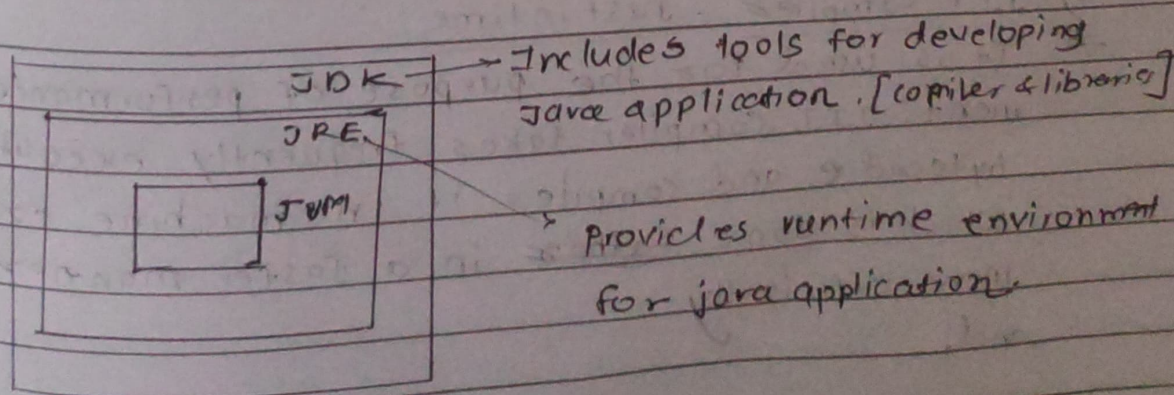 JDK - Includes tools for developing
Java application. [compiler & libraries]
JRE
JVM
Provides runtime environment
for java application.